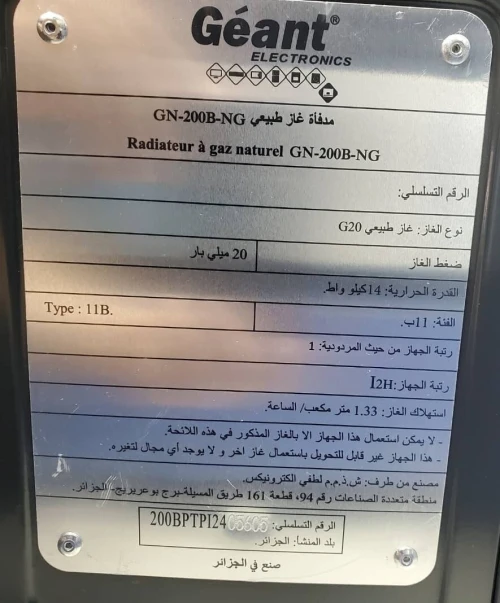 Géant®
ELECTRONICS
مدفأة غاز طبيعي GN-200B-NG
Radiateur à gaz naturel GN-200B-NG
الرقم التسلسلي:
نوع الغاز: غاز طبيعي G20
ضغط الغاز 20 ميلي بار
القدرة الحرارية: 14كيلو واط.
الفئة: 11ب. Type : 11B.
رتبة الجهاز من حيث المردودية: 1
رتبة الجهاز:I2H
استهلاك الغاز: 1.33 متر مكعب/ الساعة.
- لا يمكن استعمال هذا الجهاز الا بالغاز المذكور في هذه اللائحة.
- هذا الجهاز غير قابل للتحويل باستعمال غاز اخر و لا يوجد أي مجال لتغيره.
مصنع من طرف: ش.ذ.م.م لطفي الكترونيكس.
منطقة متعددة الصناعات رقم 94، قطعة 161 طريق المسيلة-برج بوعريريج- الجزائر.
الرقم التسلسلي: 200BPTPI24
بلد المنشأ: الجزائر.
صنع في الجزائر